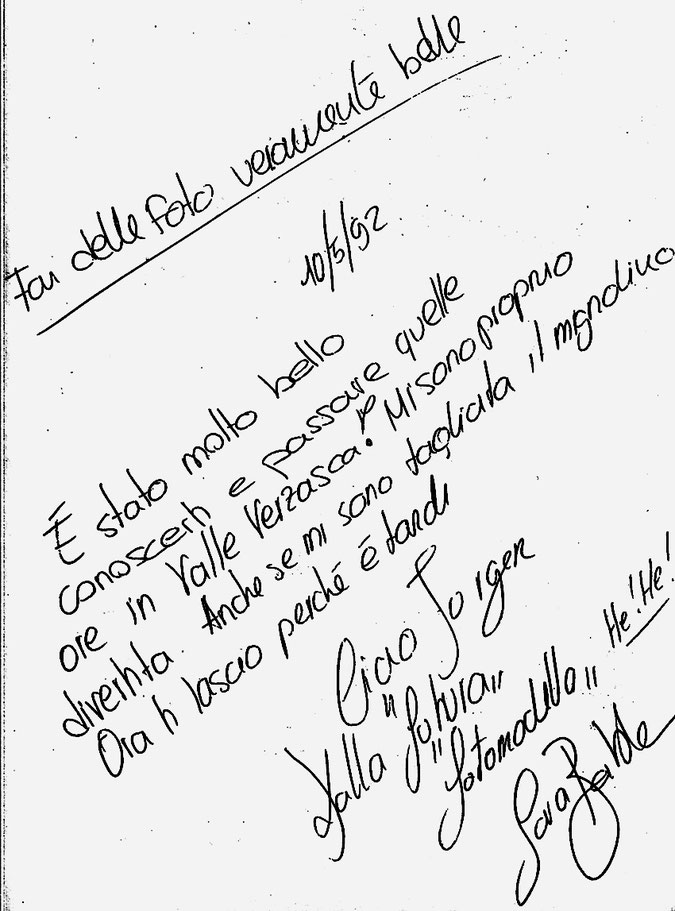 Fai delle foto veramente belle
10/5/92
È stato molto bello
conoscerti e passare quelle
ore in Valle Verzasca. Mi sono proprio
divertita. Anche se mi sono tagliata il mignolino
Ora ti lascio perché é tardi
Ciao Jurgen
Dalla "futura"
"fotomodella" He! He!
Sara